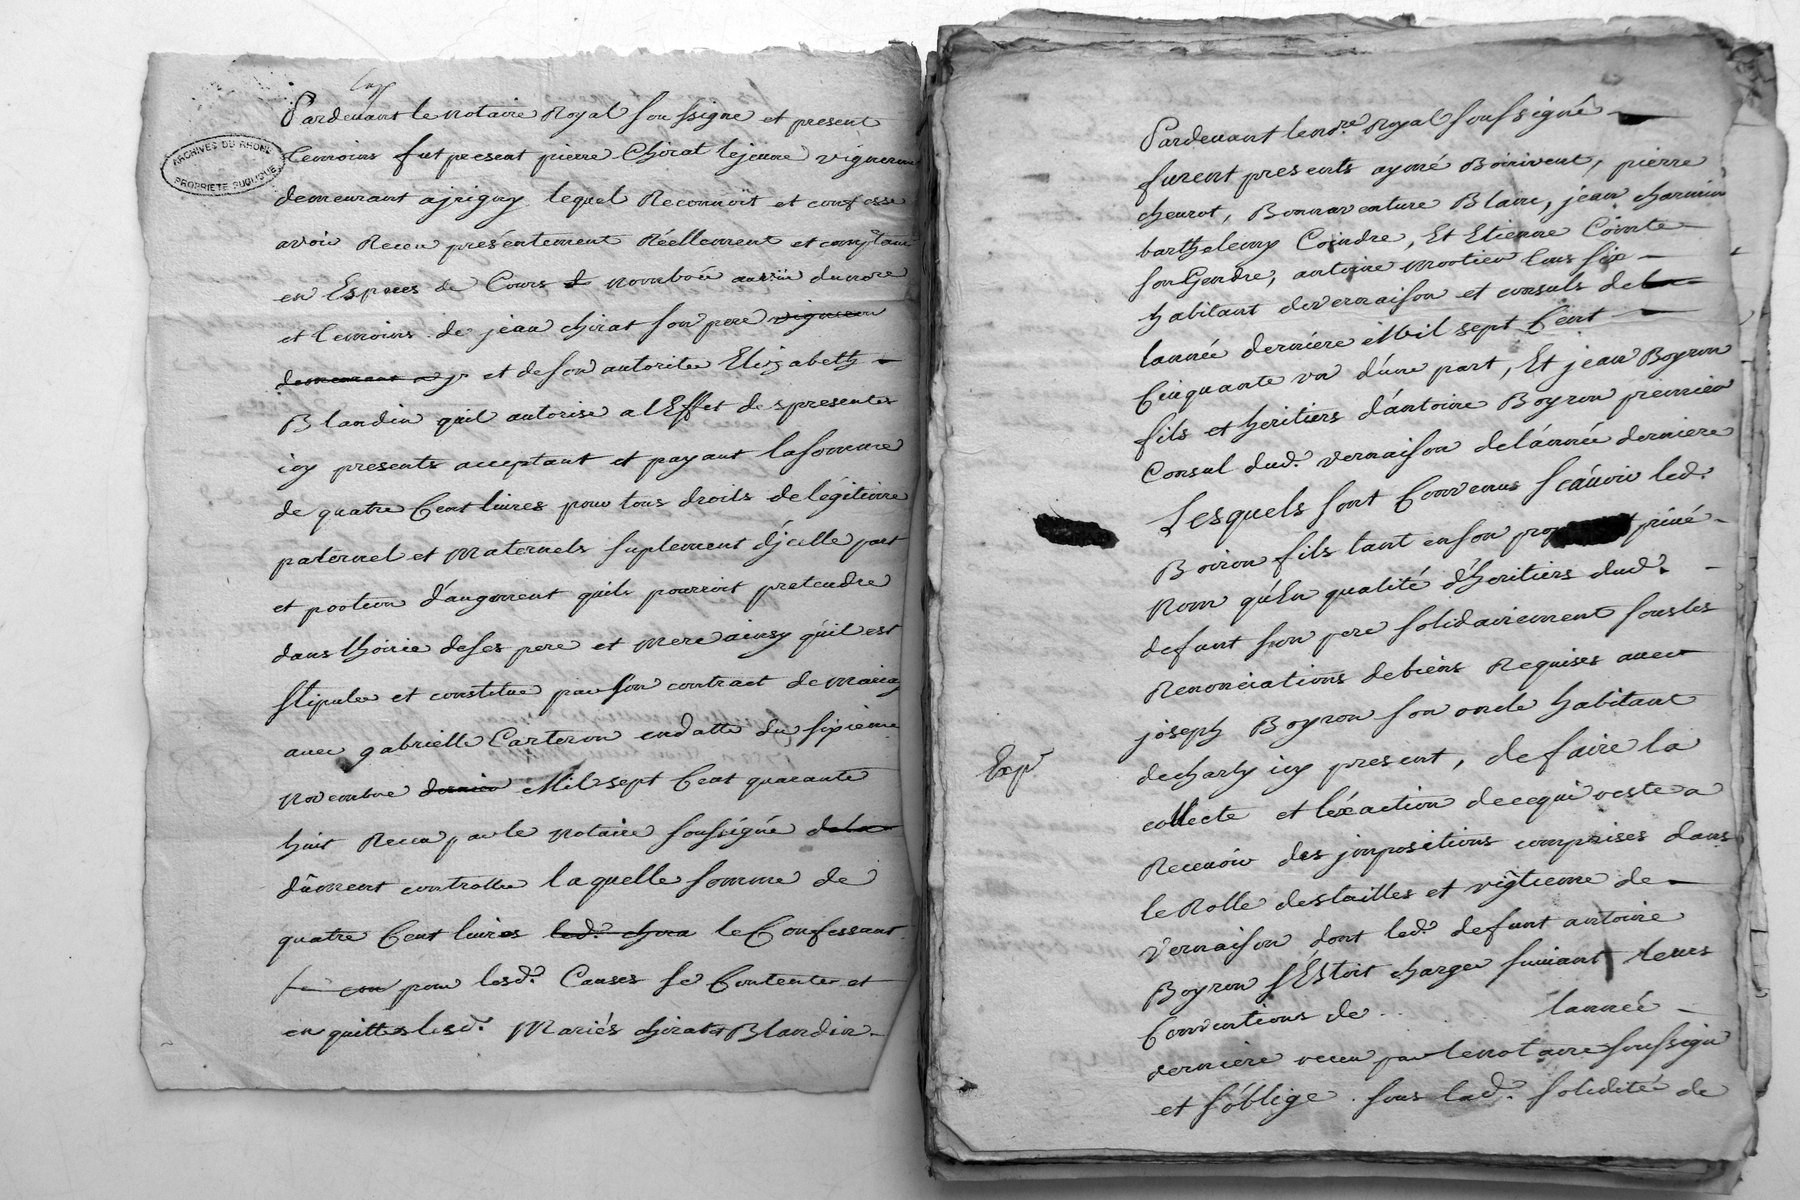 Exp
Pardevant le notaire Royal soussigne et present
temoins fut present pierre Chirat lejeune vigneron
demeurant ajrigny lequel Reconnoit et confesse
avoir Receu présentement Réellement et comptant
en Especes de Cours et nombrée au vu dunore
et temoins de jean chirat son pere vigneron
demeurant a jr et deson autorite Elizabeth
Blandin quil autorise a lEffet des presentes
icy presents acceptant et payant lasomme
de quatre Cent livres pour tous droits de légitime
paternel et maternels suplement d'jcelle part
et portion d'augment quils pourroit pretendre
dans lhoirie deses pere et mere ainsy quil est
stipulee et constitue par son contract de mariag
avec gabrielle Carteron endatte du sixieme
novembre dernier Mil sept Cent quarante
huit Receu par le notaire soussigné dela
dûment controlle laquelle somme de
quatre Cent livres led. chira le Confessant
pour lesd. Causes se Contente et
en quitte lesd. Mariés chirat et Blandin
ARCHIVES DU RHONE
PROPRIETE PUBLIQUE
Pardevant lenore Royal soussigné
furent presents aymé Boirivent, pierre
cheurot, Bonnaventure Blanc, jean charmin
barthelemy Coindre, Et Etienne Cointe
son Gendre, antoine mortier tous six
habitant devernaison et consuls dela
lannée derniére Mil sept Cent
Cinquante un d'une part, Et jean Boyron
fils et heritiers d'antoine Boyron premier
Consul dud. vernaison del'année derniere
Lesquels sont Convenus scavoir led.
Boiron fils tant enson pro privé
Nom qu'En qualité d'heritiers dud.
defunt son pere solidairement sousles
Renonciations debiens Requises avec
joseph Boyron son oncle habitant
decharly icy present, de faire la
Exp
collecte et l'exaction decequi reste a
Recevoir des jmpositions comprises dans
le Rolle destailles et vigtieme de
Vernaison dont led. defunt antoine
Boyron s'Estoit charger suivant leurs
Conventions de . . . . lannée
derniere receu par lenotaire soussigne
et s'oblige sous lad. solidité de